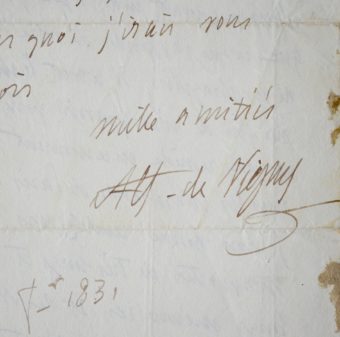 quoi j'irais vous
mille amitiés
Alf - de Vigny
1831